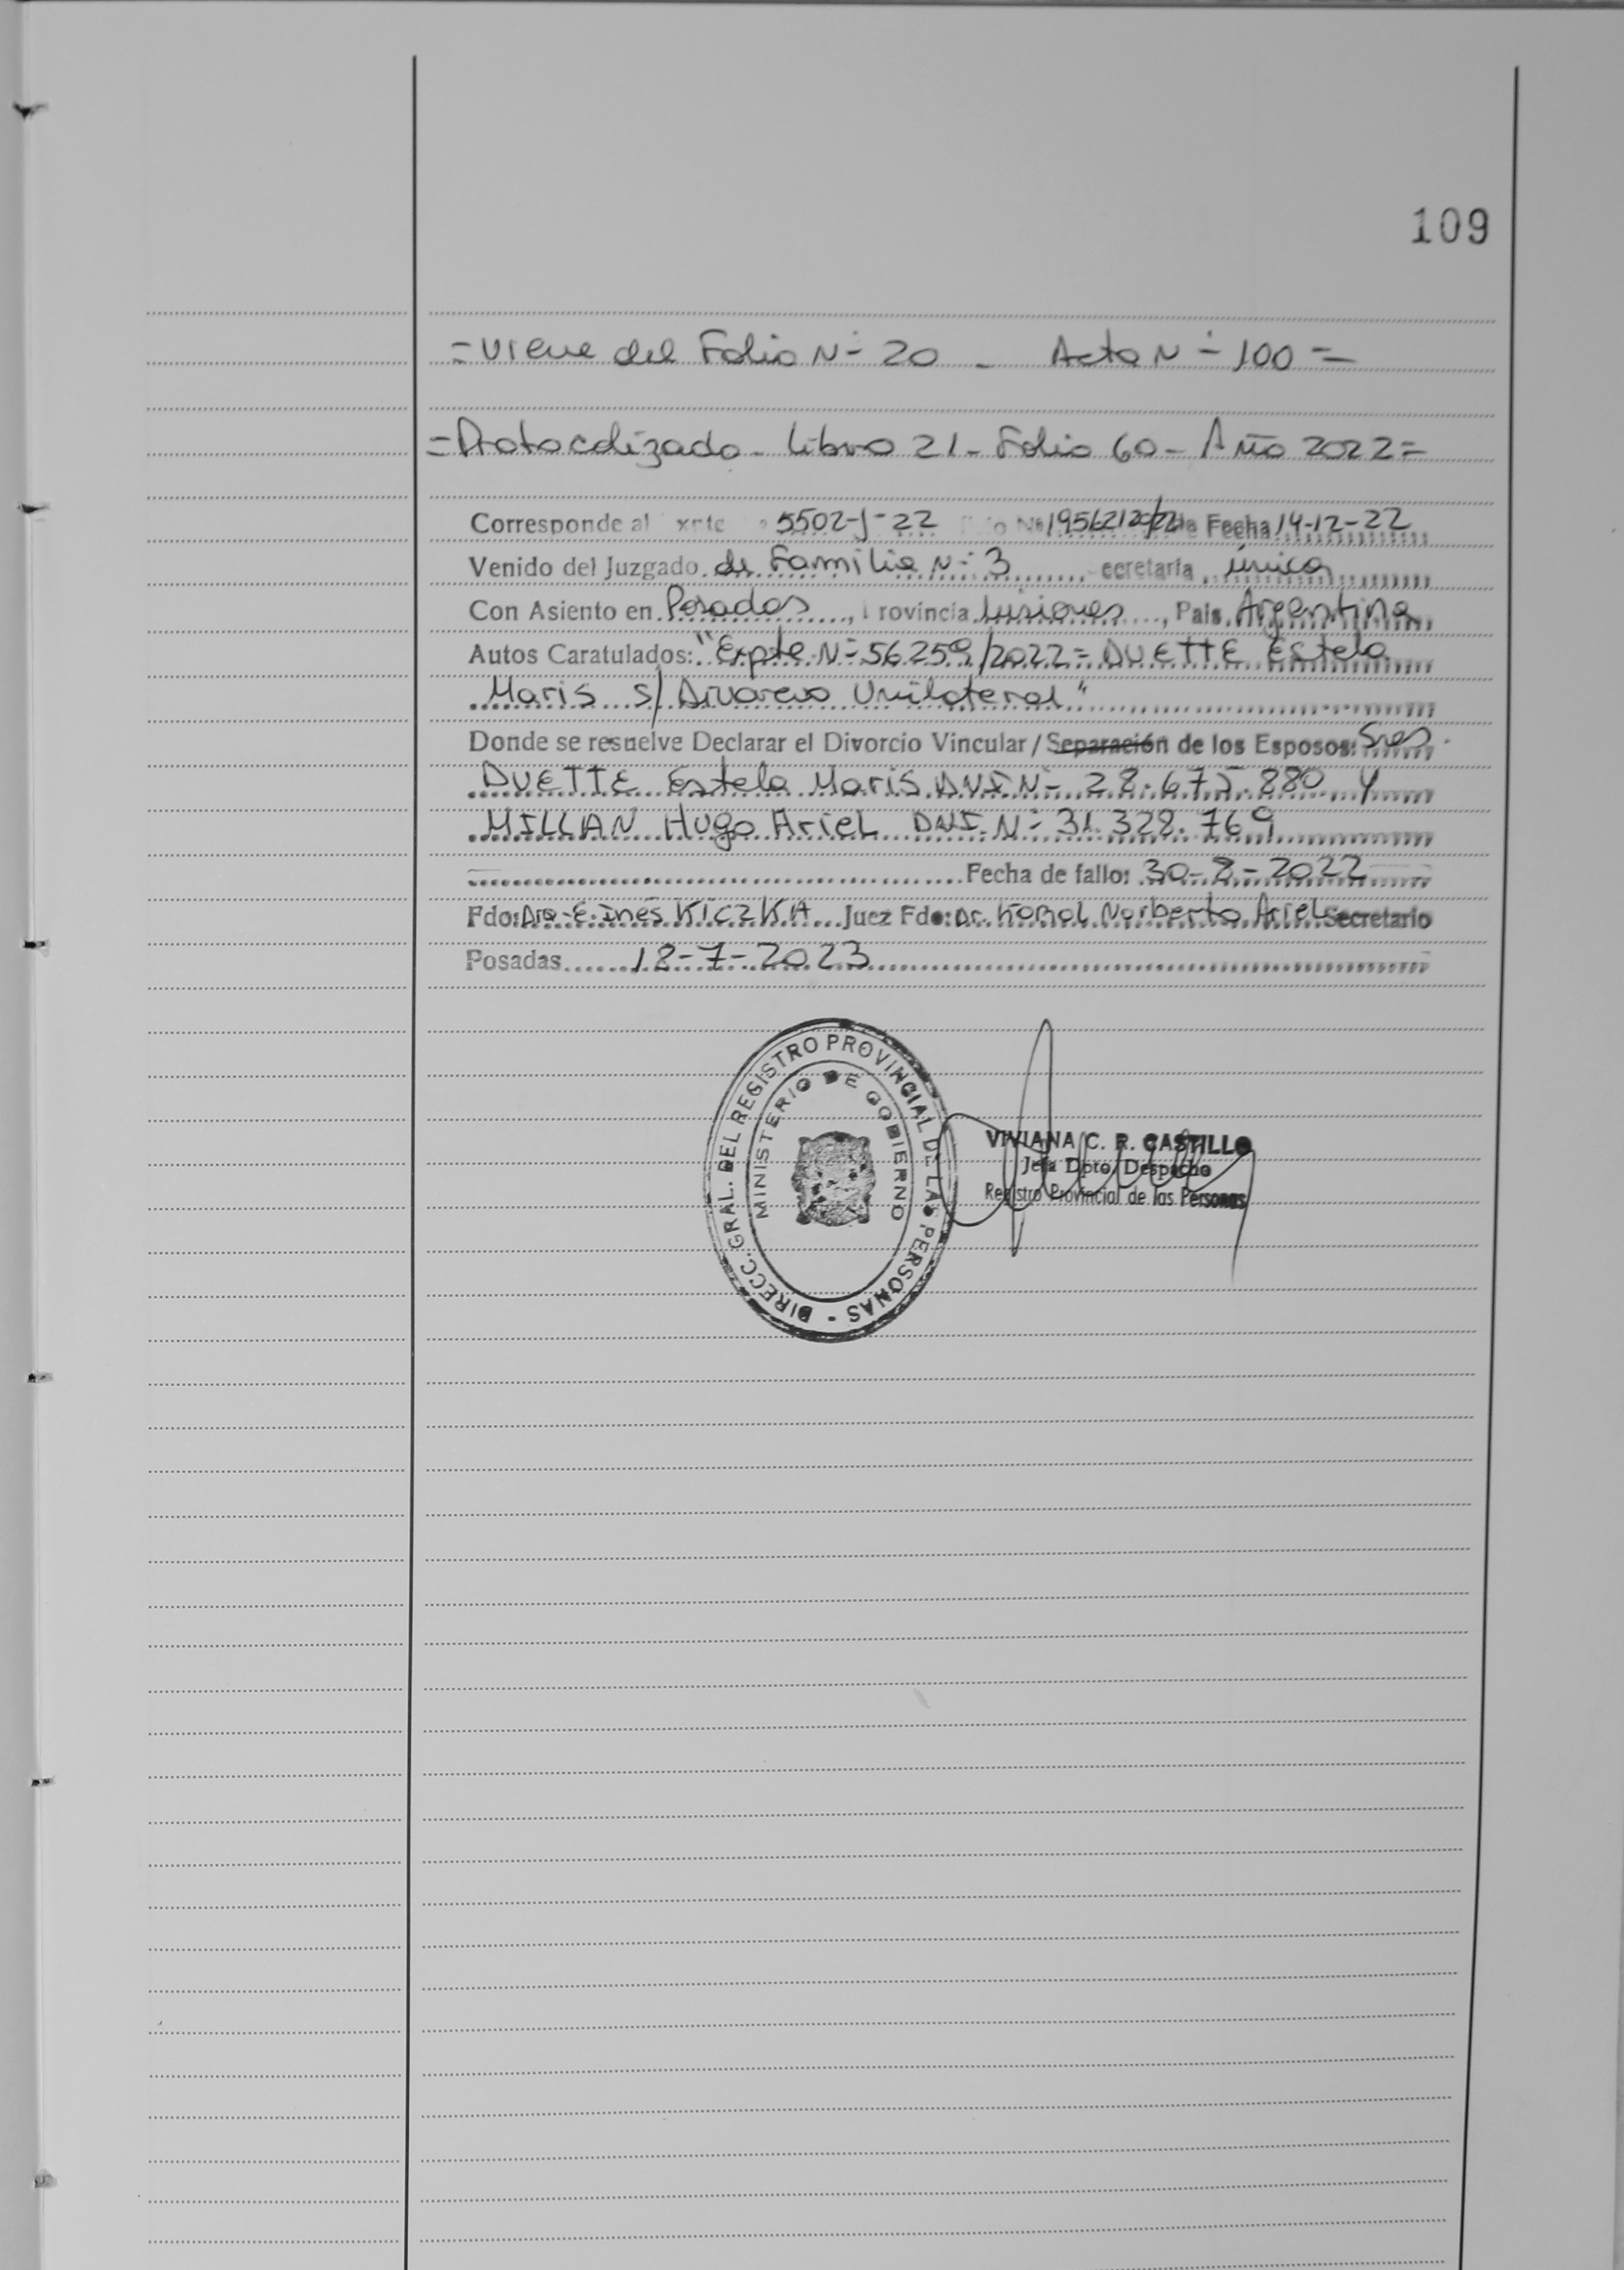 109
= Viene del Folio Nº 20 _ Acta Nº 100 =
= Protocolizado - Libro 21 - Folio 60 - Año 2022 =
Corresponde al xpte 5502-J-22 Nº 195621 de Fecha 14-12-22
Venido del Juzgado de Familia Nº 3 ecretaría única
Con Asiento en Posadas, rovincia Misiones, Pais Argentina
Autos Caratulados: "Expte Nº 56259/2022 = DUETTE Estela
Maris s/ Divorcio Unilateral"
Donde se resuelve Declarar el Divorcio Vincular / Separación de los Esposos: Sres.
DUETTE Estela Maris DNI Nº 28.675.880 y
MILLAN Hugo Ariel DNI Nº 31.328.769
Fecha de fallo: 30-8-2022
Fdo: Dra. E. Inés KICZKA Juez Fdo: Dr. KOBOL Norberto Ariel Secretario
Posadas 18-7-2023
DIRECC. GRAL. DEL REGISTRO PROVINCIAL DE LAS PERSONAS -
MINISTERIO DE GOBIERNO
VIVIANA C. R. CASTILLO
Jefa Dpto. Despacho
Registro Provincial de las Personas